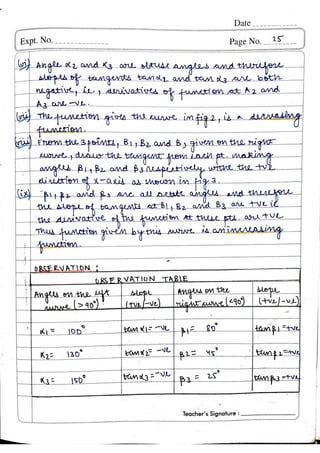 Date
Expt. No.
Page No. 25
(vi) Angle α2 and α3 are obtuse angles and therefore
slopes of tangents tanα2 and tan α3 are both
negative, ie, derivatives of function at A2 and
A3 are -ve.
The function gives the curve in fig 2, is a
function.
From the 3 points, B1, B2 and B3 given on the right
curve, draw the tangent from each pt. making
angles β1, β2 and β3 respectively with the +ve
direction of x-axis as shown in fig 2.
(ix) β1, β2 and β3 are all acute angles and therefore
the slope of tangents at B1, B2 and B3 are +ve ie
the derivative of the function at these pts. are +ve
Thus function given by this curve is an increasing
function.
OBSERVATION :
OBSERVATION TABLE
Angles on the left slope Angles on the slope
curve (> 90°) (+ve/-ve) right curve (<90°) (+ve/-ve)
α1 = 100° tan α1 = -ve β1 = 80° tan β1 = +ve
α2 = 130° tan α2 = -ve β2 = 45° tan β2 = +ve
α3 = 150° tan α3 = -ve β3 = 25° tan β3 = +ve
Teacher's Signature :